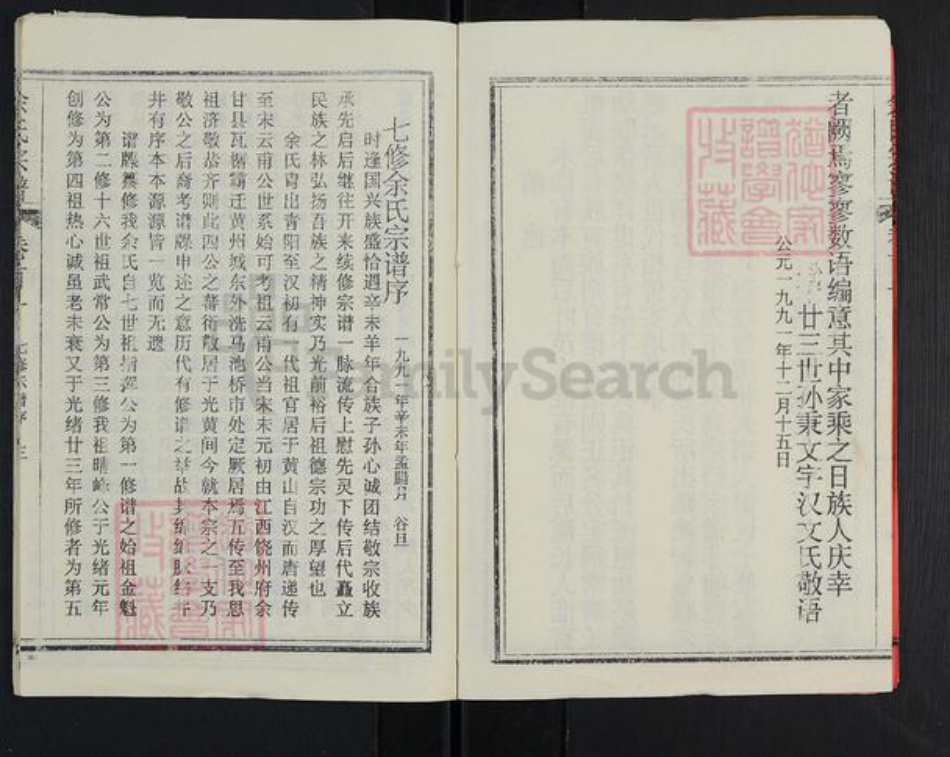 者阙焉寥寥数语编意其中家乘之日族人庆幸
廿三世孙秉文字汉文氏敬语
公元一九九一年十二月十五日
七修余氏宗谱序
一九九一年辛未年孟腊月 谷旦
时逢国兴族盛恰遇辛未羊年合族子孙心诚团结敬宗收族
承先启后继往开来续修宗谱一脉流传上慰先灵下传后代矗立
民族之林弘扬吾族之精神实乃光前裕后祖德宗功之厚望也
余氏胄出青阳至汉初有一代祖官居于黄山自汉而唐递传
至宋云甫公世系始可考祖云甫公当宋末元初由江西饶州府余
甘县瓦屑霸迁黄州城东外洗马池桥市处定厥居焉五传至我思
祖济敬恭齐则此四公之蕃衍散居于光黄间今就本宗之一支乃
敬公之后裔考谱牒申述之意历代有修谱之举故其绵绵脉络井
井有序本本源源皆一览而无遗
谱牒纂修我余氏自七世祖公为第一修谱之始祖金魁
公为第二修十六世祖武常公为第三修我祖晴峰公于光绪元年
创修为第四祖热心诚虽老未衰又于光绪廿三年所修者为第五
余氏宗谱
卷首
七修宗谱序
FamilySearch